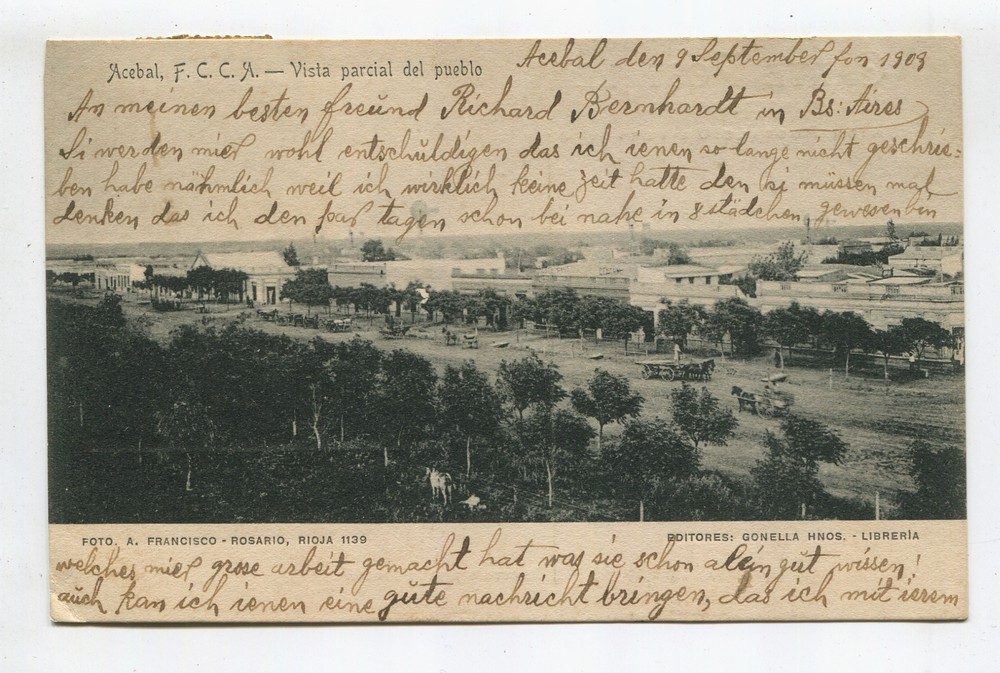 Acebal den 9 September fon 1908
Acebal, F. C. C. A. — Vista parcial del pueblo
An meinen besten freund Richard Bernhardt in Bs: Aires
Si werden mier wohl entschuldigen das ich ienen so lange nicht geschrie=
ben habe nähmlich weil ich wirklich keine zeit hatte den si müssen mal
denken das ich den par tagen schon bei nahe in 8 städchen gewesen bin
FOTO. A. FRANCISCO - ROSARIO, RIOJA 1139
EDITORES: GONELLA HNOS. - LIBRERÍA
welches mier grose arbeit gemacht hat was sie schon alein gut wissen!
auch kan ich ienen eine gute nachricht bringen, das ich mit ierem